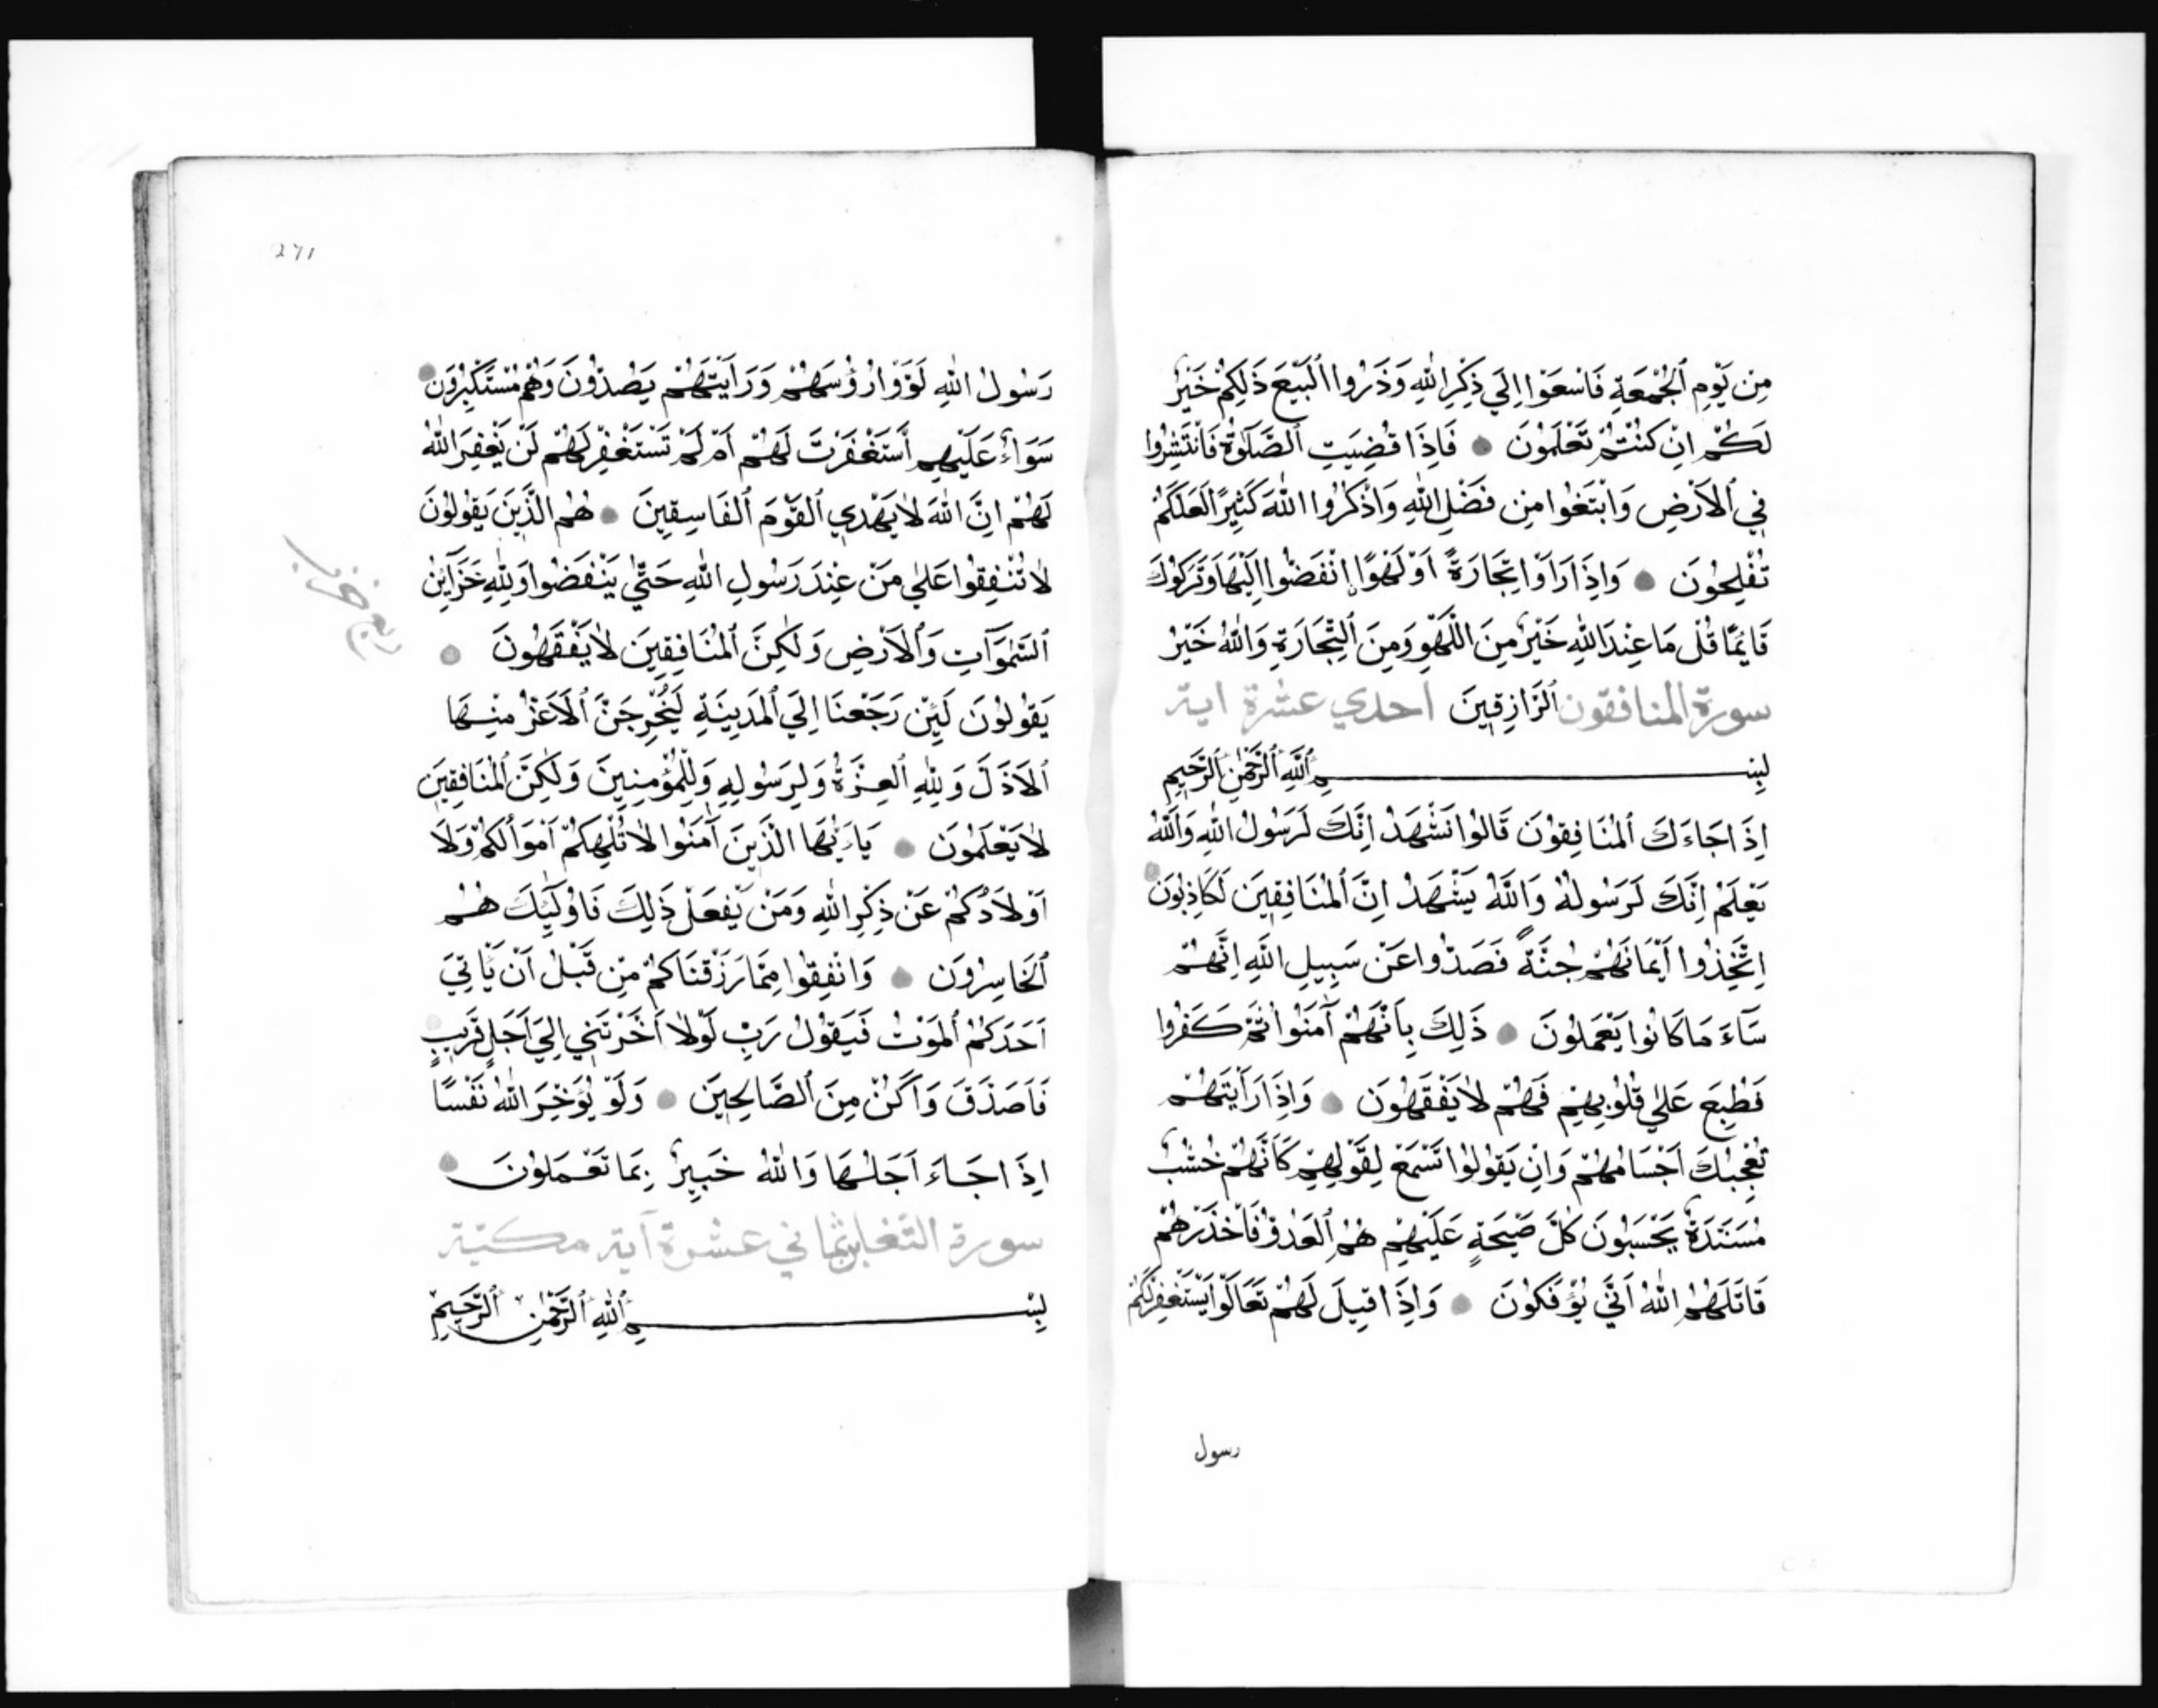 مِن يَوْمِ ٱلْجُمْعَةِ فَاسْعَوْا اِلَي ذِكْرِ اللّٰهِ وَذَرُوا الْبَيْعَ ذَلِكُمْ خَيْرٌ
لَكُمْ اِنْ كُنْتُمْ تَعْلَمُونَ ۝ فَاِذَا قُضِيَتِ ٱلصَّلَوٰةُ فَانْتَشِرُوا
فِي ٱلاَرْضِ وَابْتَغُوا مِن فَضْلِ اللّٰهِ وَاذْكُرُوا اللّٰهَ كَثِيرًا لَعَلَكُمْ
تُفْلِحُونَ ۝ وَاِذَا رَاَوْا تِجَارَةً اَوْ لَهْوًا اِنْفَضُوا اِلَيْهَا وَتَرَكُوكَ
قَائِمًا قُلْ مَا عِنْدَ اللّٰهِ خَيْرٌ مِنَ اللَّهْوِ وَمِنَ ٱلتِّجَارَةِ وَاللّٰهُ خَيْرُ
ٱلرَّازِقِينَ سورة المنافقون احدي عشرة اية
بِسْمِ ٱللّٰهِ ٱلرَّحْمٰنِ ٱلرَّحِيمِ
اِذَا جَاءَكَ ٱلْمُنَافِقُونَ قَالُوا نَشْهَدُ اِنَّكَ لَرَسُولُ اللّٰهِ وَاللّٰهُ
يَعْلَمُ اِنَّكَ لَرَسُولُهُ وَاللّٰهُ يَشْهَدُ اِنَّ ٱلْمُنَافِقِينَ لَكَاذِبُونَ ۝
اِتَّخِذُوا اَيْمَانَهُمْ جُنَّةً فَصَدُّوا عَنْ سَبِيلِ اللّٰهِ اِنَّهُمْ
سَآءَ مَا كَانُوا يَعْمَلُونَ ۝ ذَلِكَ بِاَنَّهُمْ آمَنُوا ثُمَّ كَفَرُوا
فَطُبِعَ عَلٰي قُلُوبِهِمْ فَهُمْ لاَ يَفْقَهُونَ ۝ وَاِذَا رَاَيْتَهُمْ
تُعْجِبُكَ اَجْسَامُهُمْ وَاِنْ يَقُولُوا تَسْمَعْ لِقَوْلِهِمْ كَاَنَّهُمْ خُشُبٌ
مُسَنَدَةٌ يَحْسَبُونَ كُلَّ صَيْحَةٍ عَلَيْهِمْ هُمُ ٱلْعَدُوُّ فَاحْذَرْهُمْ
قَاتَلَهُمُ اللّٰهُ اَنَّي يُؤْفَكُونَ ۝ وَاِذَا قِيلَ لَهُمْ تَعَالَوْا يَسْتَغْفِرْ لَكُمْ
رسول
271
رَسُولُ اللّٰهِ لَوَّوْا رُؤُسَهُمْ وَرَاَيْتَهُمْ يَصُدُّونَ وَهُمْ مُسْتَكْبِرُونَ ۝
سَوَآءٌ عَلَيْهِمِ أَسْتَغْفَرْتَ لَهُمْ اَمْ لَمْ تَسْتَغْفِرْ لَهُمْ لَنْ يَغْفِرَ اللّٰهُ
لَهُمْ اِنَّ اللّٰهَ لاَ يَهْدِي ٱلْقَوْمَ ٱلْفَاسِقِينَ ۝ هُمُ الَّذِينَ يَقُولُونَ
لاَ تُنْفِقُوا عَلٰي مَنْ عِنْدَ رَسُولِ اللّٰهِ حَتّٰي يَنْفَضُوا وَلِلّٰهِ خَزَآئِنُ
ٱلسَّمٰوَآتِ وَٱلاَرْضِ وَلٰكِنَّ ٱلْمُنَافِقِينَ لاَ يَفْقَهُونَ ۝
يَقُولُونَ لَئِنْ رَجَعْنَا اِلَي ٱلْمَدِينَةِ لَيُخْرِجَنَّ ٱلاَعَزُّ مِنْهَا
ٱلاَذَلَّ وَلِلّٰهِ ٱلْعِزَّةُ وَلِرَسُولِهِ وَلِلْمُؤْمِنِينَ وَلٰكِنَّ ٱلْمُنَافِقِينَ
لاَ يَعْلَمُونَ ۝ يَاءَيُّهَا الَّذِينَ آمَنُوا لاَ تُلْهِكُمْ اَمْوَالُكُمْ وَلاَ
اَوْلاَدُكُمْ عَنْ ذِكْرِ اللّٰهِ وَمَنْ يَفْعَلْ ذَلِكَ فَاُولٰئِكَ هُمُ
ٱلْخَاسِرُونَ ۝ وَانْفِقُوا مِمَّا رَزَقْنَاكُمْ مِنْ قَبْلُ اَنْ يَّاتِيَ
اَحَدَكُمْ ٱلْمَوْتُ فَيَقُولُ رَبِّ لَوْلاَ اَخَّرْتَنِي اِلَيٰ اَجَلٍ قَرِيبٍ ۝
فَاَصَدَّقَ وَاَكُنْ مِنَ ٱلصَّالِحِينَ ۝ وَلَوْ يُؤَخِّرَ اللّٰهُ نَفْسًا
اِذَا جَاءَ اَجَلُهَا وَاللّٰهُ خَبِيرٌ بِمَا تَعْمَلُونَ ۝
سورة التغابن ثماني عشرة آية مكيّة
بِسْمِ ٱللّٰهِ ٱلرَّحْمٰنِ ٱلرَّحِيمِ